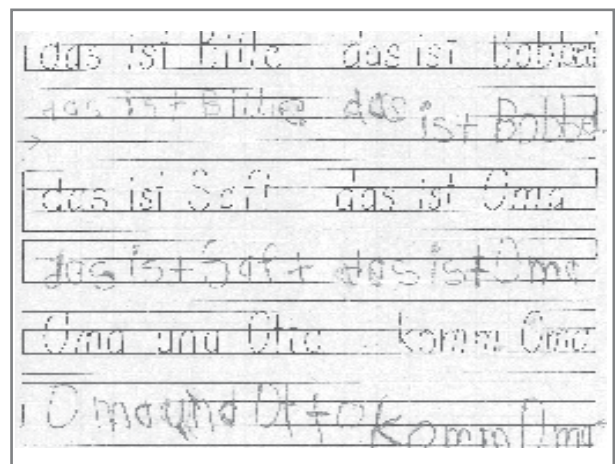 das ist Bille das ist Bobbel
das ist Bille das ist Bobbel
das ist Saft das ist Oma
das ist Saft das ist Oma
Oma und Otto komm Oma
Oma und Otto komm Oma